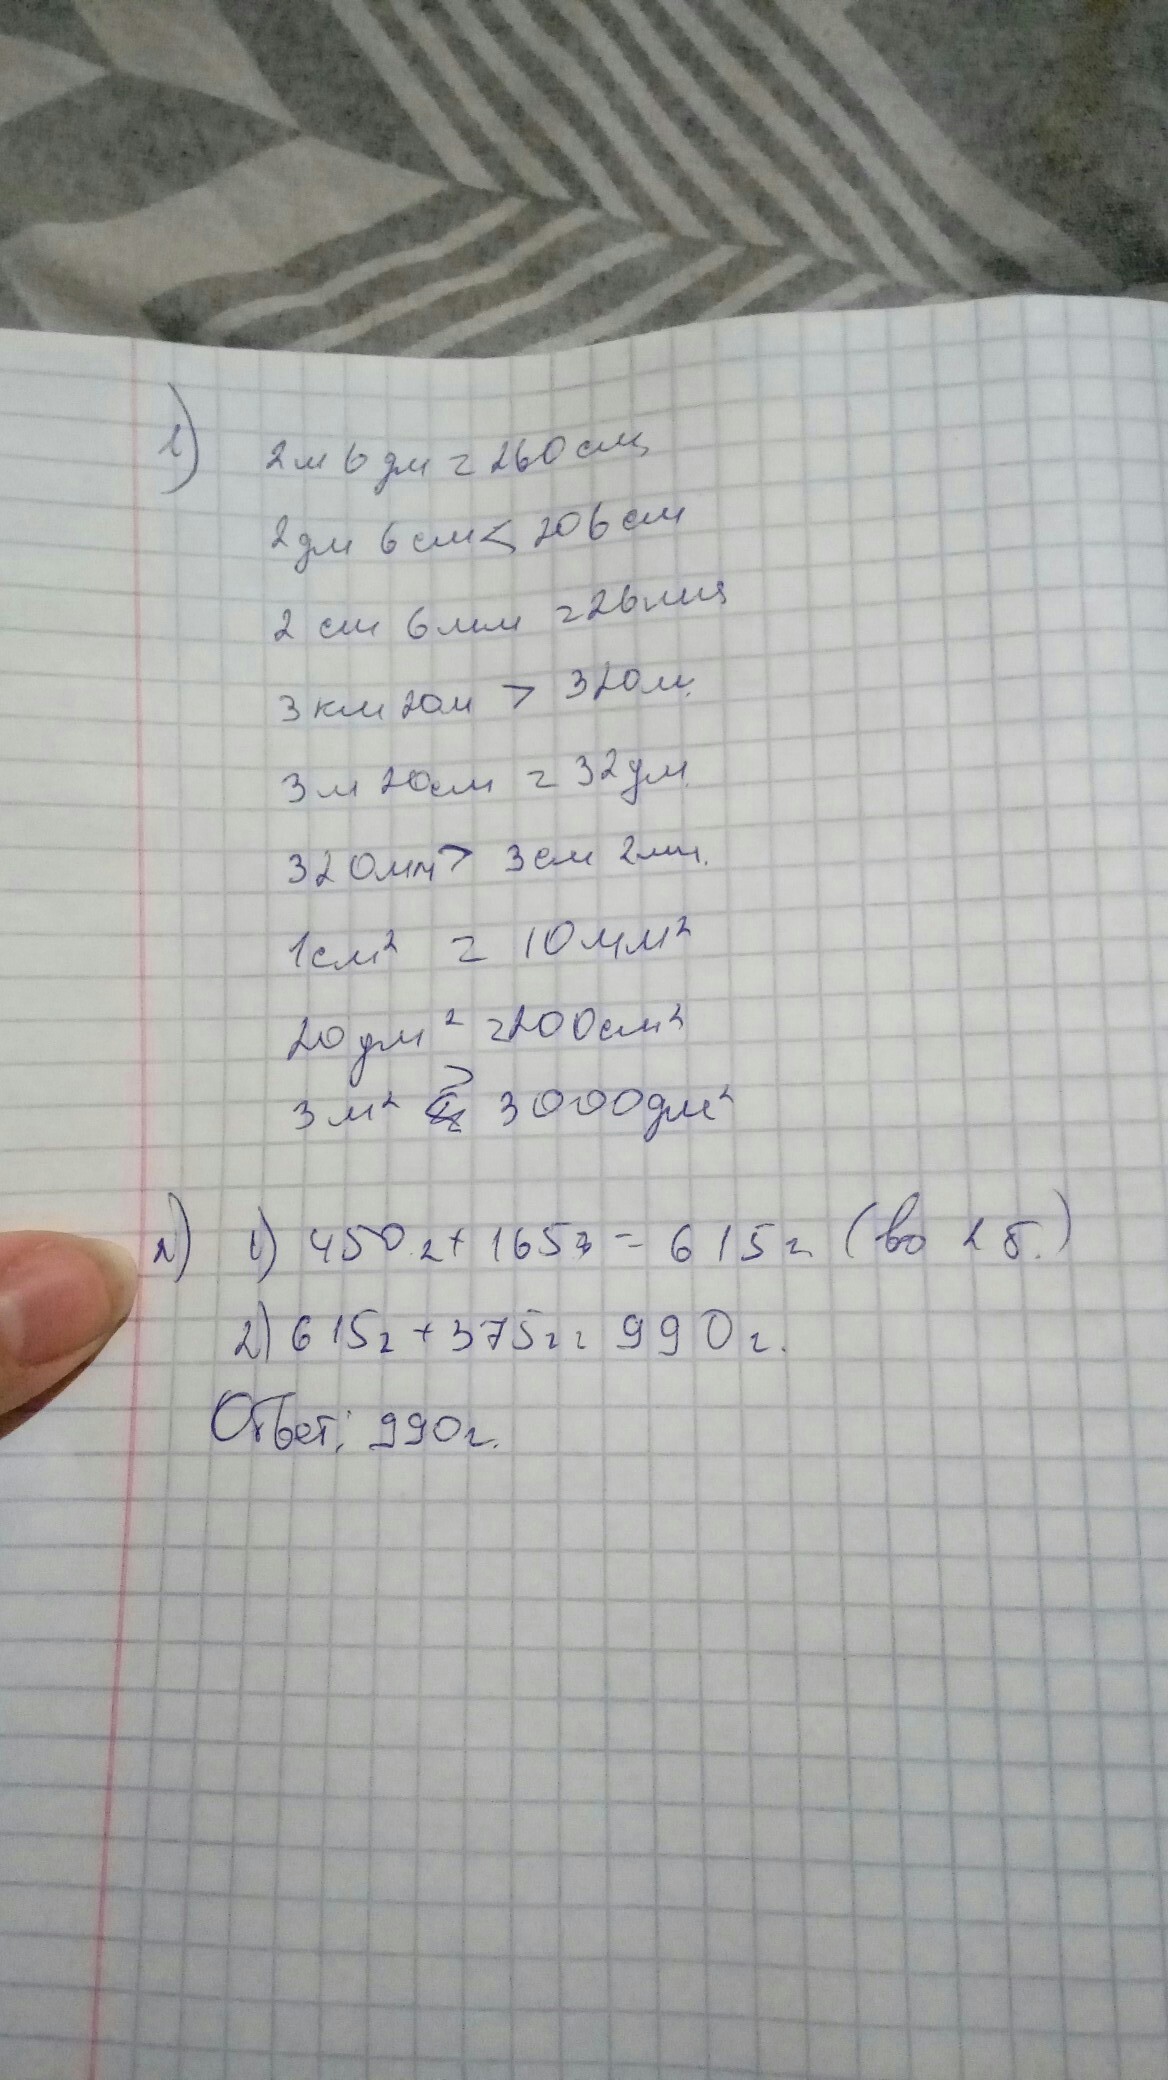 1) 2м 6 дм = 260 см
2дм 6 см < 206 см
2 см 6 мм = 26 мм
3 км 20м > 320м.
3 м 20см = 32дм.
320мм > 3см 2мм.
1см² = 10мм²
20дм² = 200см²
3м² 3000дм²
2) 1) 450г + 165г = 615г (во 2 б.)
2) 615г + 375г = 990г.
Ответ: 990г.